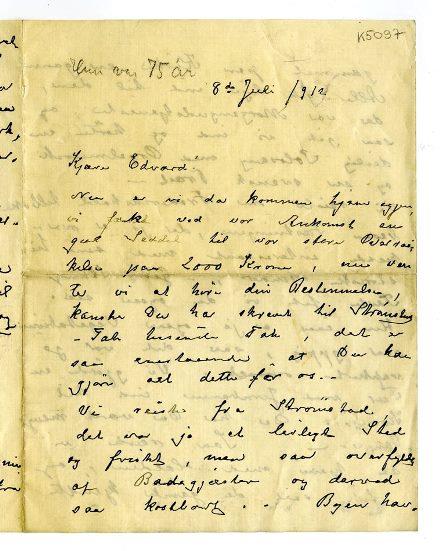 K5097
Hun var 75 år
8de Juli /912
Kjære Edvard.
Nu er vi da kommen hjem igjen,
vi fik ved vor Ankomst en
gul Seddel til vor store Overras
kelse paa 2000 Krone, nu ven
ter vi at høre din Bestemmelse,
kanske Du har skrevet til Strömstad
– Tak tusende Tak, det er
saa enestaaende at Du kan
gjøre alt dette for os. –
Vi reiste fra Strömstad,
det var jo et deiligt Sted
og friskt, men saa overfyldt
af Badegjæster og derved
saa kostbart. . . Byen hav-